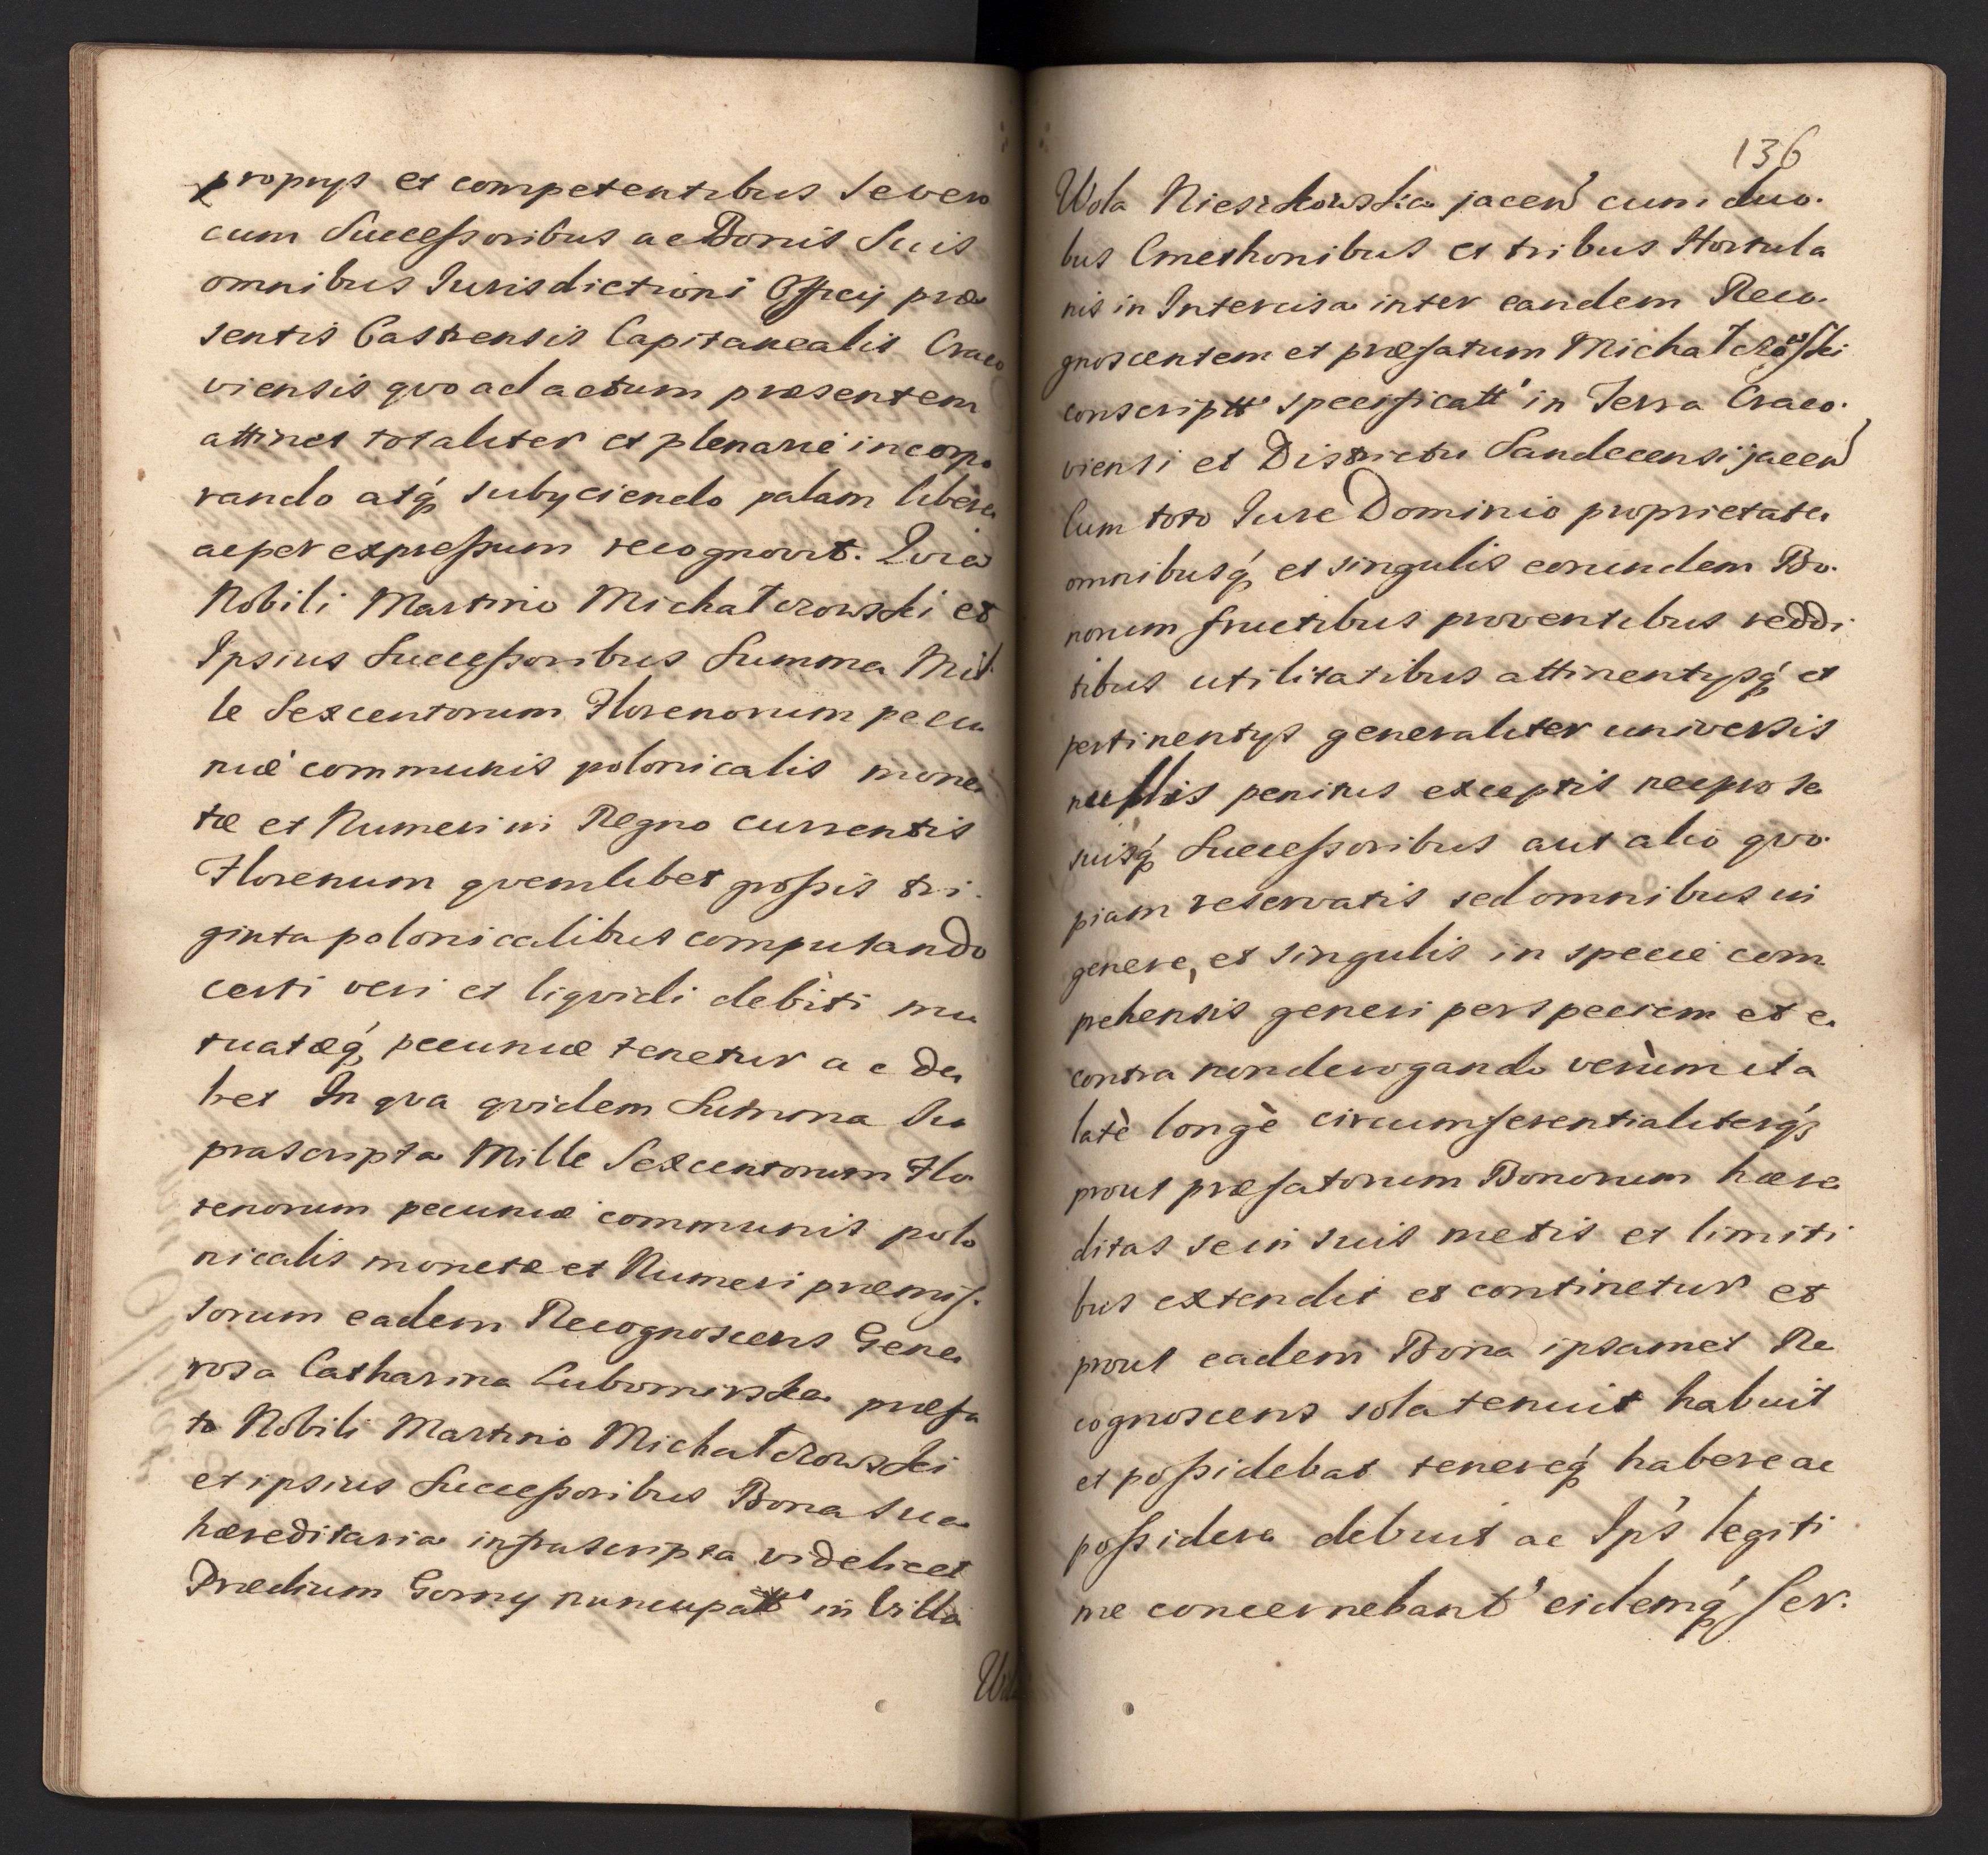 proprys et competentibus se vero
cum Successoribus ac Bonis Suis
omnibus Jurisdictioni Officij præ
sentis Castrensis Capitanealis Craco
viensis qvo ad actum præsentem
attinet totaliter et plenarie incorpo
rando atq́ subyciendo palam libere
ac per expressum recognovit. Qvia
Nobili Martino Michałczowski et
Ipsius Successoribus Summa Mil
le Sexcentorum Florenorum pecu
niæ communis polonicalis mone
tæ et Numeri in Regno currentis
Florenum qvemlibet grossis tri.
ginta polonicalibus computando
certi veri et liqvidi debiti mu
tuatæq́ pecuniæ tenetur ac de
bet In qva qvidem Summa Su
prascripta Mille Sexcentorum Flo
renorum pecuniæ communis polo
nicalis monetæ et Numeri præmis.
sorum eadem Recognoscens Gene
rosa Catharina Lubomirska præfa
to Nobili Martino Michałczowski
et ipsius Successoribus Bona sua
hæreditaria infrascripta videlicet
Prædium Gorny nuncupatt' in Villa
136
Wola Nieszkowska jacen' cum duo.
bus Cmethonibus et tribus Hortula
nis in Intercisa inter eandem Reco.
gnoscentem et præfatum Michałczowski
conscriptt' specificatt' in Terra Craco.
viensi et Districtu Sandecensi jacen'
Cum toto Jure Dominio proprietate
omnibusq́ et singulis eorundem Bo.
norum fructibus proventibus reddi
tibus utilitatibus attinentysq́ et
pertinentys generaliter universis
nullis penitus exceptis nec pro se
suisq́ Successoribus aut alio qvo.
piam reservatis sed omnibus in
genere, et singulis in specie com
prehensis generi per speciem et e
contra non derogando verùm ita
latè longè circumferentialiterq́
prout præfatorum Bonorum hære
ditas se in suis metis et limiti
bus extendit et continetur et
prout eadem Bona ipsamet Re
cognoscens sola tenuit habuit
et possidebat tenereq́ habere ac
possidere debuit ac Ips' legiti
me concernebant' eidemq́ ser.